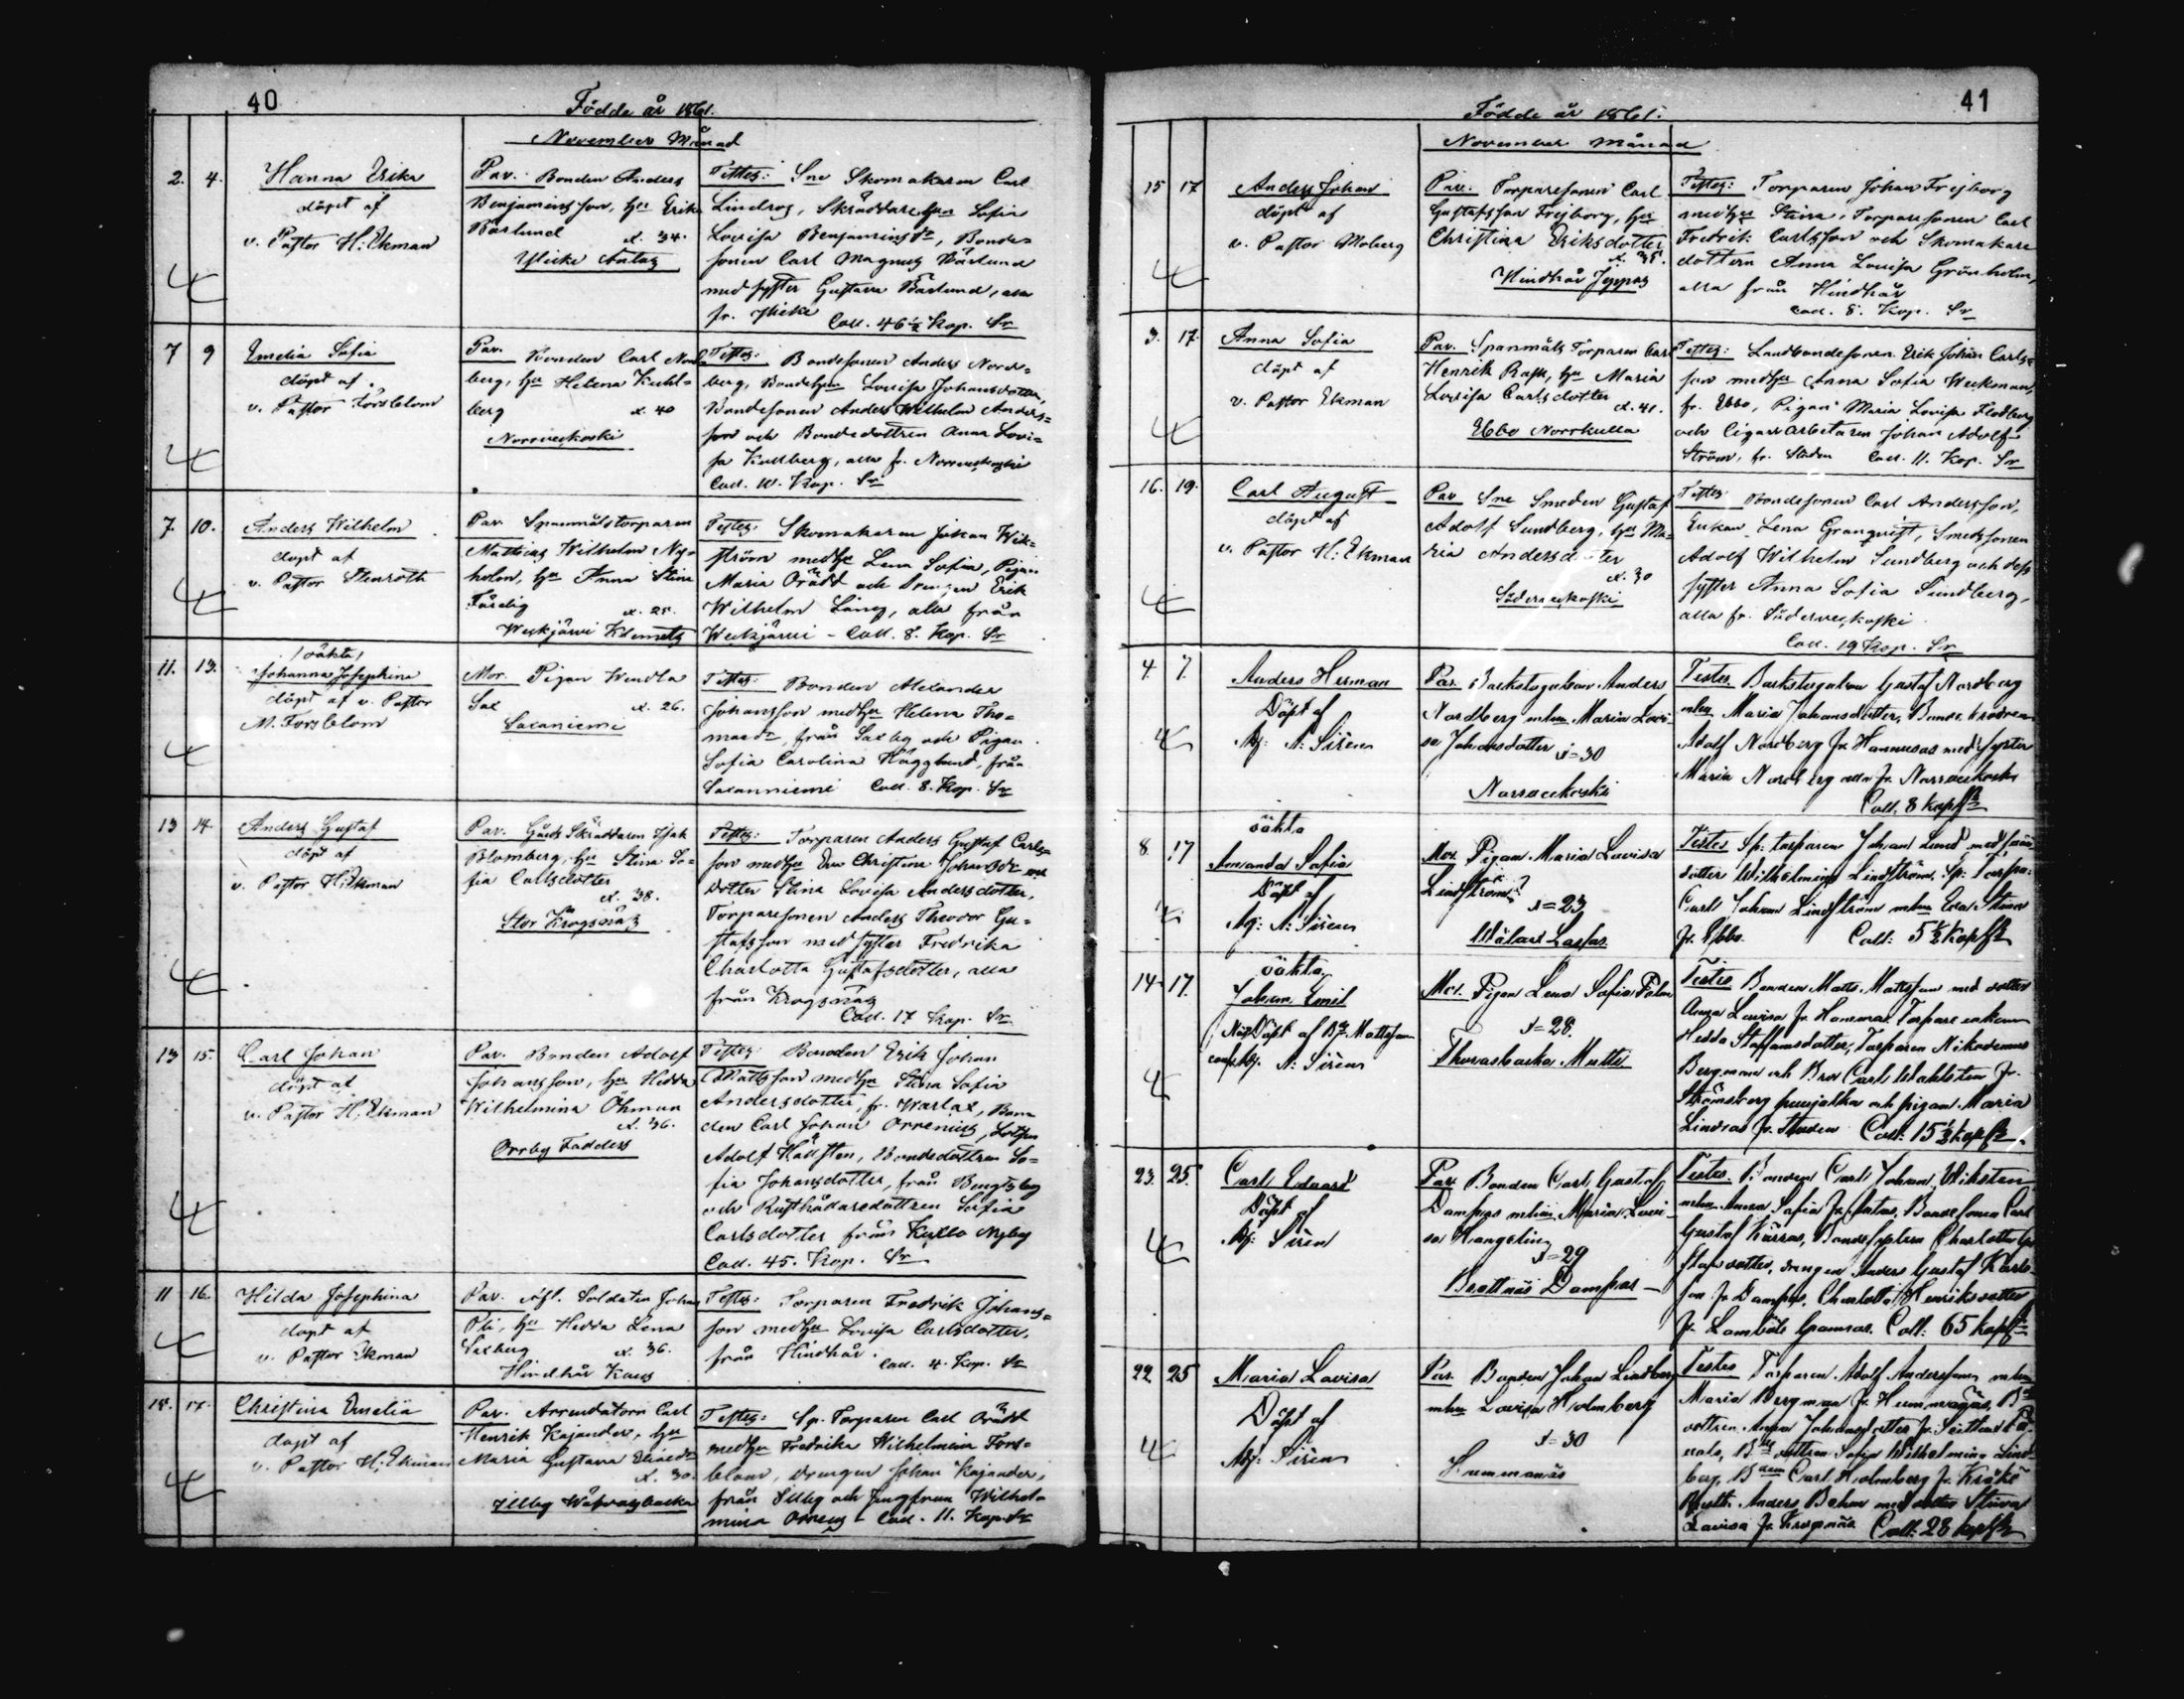 40
Födde år 1861.
November Månad
2. 4.
Hanna Erika
döpt af
v. Pastor H: Ekman
Par. Bonden Anders
Benjaminsson, hu Erika
Bärlund
æ. 34.
Illeike Antas
Testes: Sne Skomakaren Carl
Lindros, Skräddarehun Sofia
Lovisa Benjaminsdr, Bonde=
sonen Carl Magnus Bärlund
med syster Gustava Bärlund, alla
fr.
Coll. 46½ Kop. Sr
7 9
Emelia Sofia
döpt af
v. Pastor Forsblom
Par. Bonden Carl Nord=
berg, hu Helena Kuhl=
berg
æ. 40
Norrveckoski
Testes: Bondesonen Anders Nord=
berg, Bondehun Lovisa Johansdotter,
Bondesonen Anders Wilhelm Anders=
son och Bondedottren Anna Lovi=
sa Kullberg, alla fr. Norrveckoski
Coll. 10. Kop. Sr
7. 10.
Anders Wilhelm
döpt af
v. Pastor Stenroth
Par. Spanmålstorparen
Mathias Wilhelm Ny=
holm, hu Anna Stina
Färdig
æ. 25.
Weckjärvi Klemets
Testes: Skomakaren Johan Wik=
ström medhu Lena Sofia, Pigan
Maria Orädd och Drengen Erik
Wilhelm Läng, alla från
Weckjärvi - Coll. 8. Kop. Sr
11. 13.
/oäkta/
Johanna Josephina
döpt af v. Pastor
M. Forsblom
Mor. Pigan Wendla
Sax
æ. 26.
Saxaniemi
Testes: Bonden Alexander
Johansson medhu Helena Tho=
masdr, från Saxby och Pigan
Sofia Carolina Hägglund, från
Saxanniemi Coll. 8. Kop. Sr
13 14.
Anders Gustaf
döpt af
v. Pastor H: Ekman
Par. Gårds Skräddaren Isak
Blomberg, hu Stina So=
fia Carlsdotter
æ. 38.
Stor Krogsnäs
Testes: Torparen Anders Gustaf Carls=
son medhu Eva Christina Johansdr och
dotter Stina Lovisa Andersdotter,
Torparesonen Anders Theodor Gu=
stafsson med syster Fredrika
Charlotta Gustafsdotter, alla
från Krogsnäs
Coll. 17 Kop. Sr
13 15.
Carl Johan
döpt af
v. Pastor H: Ekman
Par. Bonden Adolf
Johansson, hu Hedda
Wilhelmina Öhman
æ. 36.
Orrby Fadders
Testes: Bonden Erik Johan
Mattsson medhu Stina Sofia
Andersdotter, fr. Warlax, Bon
den Carl Johan Orrenius, Lotsen
Adolf Hällsten, Bondedottren So=
fia Johansdotter, från Bengtsby
och Rusthållaredottren Sofia
Carlsdotter från Kullo Nyby
Coll. 45. Kop. Sr
11 16.
Hilda Josephina
döpt af
v. Pastor Ekman
Par. Afsk. Soldaten Johan
Pli, hu Hedda Lena
Saxberg
æ. 36.
Hindhår Kaus
Testes: Torparen Fredrik Johans=
son medhu Lovisa Carlsdotter,
från Hindhår.
Coll. 4. Kop. Sr
Christina Emelia
döpt af
v. Pastor H: Ekman
Par. Arrendatorn Carl
Henrik Kajander, hu
Maria Gustava
æ. 30.
Illby Wäfvarsbacka
Testes: Sp. Torparen Carl Orädd
medhu Fredrika Wilhelmina Fors=
blom, Drengen Johan Kajander,
från Illby och Jungfrun Wilhel=
mina Orreus - Coll. 11. Kop. Sr
41
Födde år 1861.
November Månad
15 17
Anders Johan
döpt af
v. Pastor Moberg
Par. Torparesonen Carl
Gustafsson Frejborg, hu
Christina Eriksdotter
æ. 35.
Hindhår Jeppas
Testes: Torparen Johan Frejborg
medhu Stina, Torparesonen Carl
Fredrik Carlsson och Skomakare
dottern Anna Lovisa Grönholm,
alla från Hindhår
Coll. 8. Kop. Sr
3. 17.
Anna Sofia
döpt af
v. Pastor Ekman
Par. Spanmåls Torparen Carl
Henrik Rask, hu Maria
Lovisa Carlsdotter
æ. 41.
Ebbo Norrkulla
Testes: Landbondesonen Erik Johan Carls=
son medhu Anna Sofia Weckman,
fr. Ebbo, Pigan Maria Lovisa Flodberg
och Cigarr arbetaren Johan Adolf
Ström, fr. Staden Coll. 11. Kop. Sr
16. 19.
Carl August
döpt af
v. Pastor H: Ekman
Par Sne Smeden Gustaf
Adolf Sundberg, hu Ma=
ria Andersdotter
æ. 30
Söderveckoski
Testes Bondesonen Carl Andersson,
Enkan Lena Granqvist, Smedssonen
Adolf Wilhelm Sundberg och dess
syster Anna Sofia Sundberg,
alla fr. Söderveckoski
Coll. 19 Kop. Sr
4 7.
Anders Herman
Döpt af
Adj: A: Sirèn
Par. Backstugukarl Anders
Nordberg mhu Maria Lovi-
sa Johansdotter æ=30
Norrveckoski
Testes Backstugukarl Gustaf Nordberg
mhu Maria Johansdotter, Bonde brodren
Adolf Nordberg fr. Hannusas med syster
Maria Nordberg alla fr. Norrveckoski
Coll. 8 kop Sr
8 17
oäkta
Amanda Sofia
Döpt af
Adj: A: Sirèn
Mor. Pigan Maria Lovisa
Lindström?
æ=23
Lassas
Testes Sp: torparen Johan Lund med
dotter Wilhelmina Lindström, Sp: Torpa:
Carl Johan Lindström mhu Eva Stina
fr. Ebbo. Coll: 5½ Kop Sr
14 17.
oäkta
Johan Emil
Nöd Döpt af Mattsson
conf. Adj. A: Sirèn
Mor. Pigan Lena Sofia Palm
æ=28.
Thorasbacka Matts
Testes Bonden Matts Mattsson med dotter
Anna Lovisa fr. Hommar. Torpare enkan
Hedda Staffansdotter, Torparen Nikodemus
Bergman och Bror Carl Wahlsten fr.
Strömsborg och pigan Maria
Lindros fr. Staden Coll: 15½ kop Sr
23. 25.
Carl Eduard
Döpt af
Adj: Sirèn
Par Bonden Carl Gustaf
Dampas mhu Maria Lovi-
sa Hangelin
æ=29
Brottnäs Dampas -
Testes. Bonden Carl Johan Wiksten
mhu Anna Sofia fr. Antas, Bondesonen Carl
Gustaf Kärras, Bonde systern Charlotta Gu
stafsdotter, drengen Anders Gustaf Karls-
son fr Dampas, Charlotta Henriksdotter
fr. Lamböle Coll: 65 kop Sr
22 25
Maria Lovisa
Döpt af
Adj: Sirèn
Par. Bonden Johan Lindberg
mhu Lovisa Holmberg
æ=30
Hummanäs
Testes Torparen Adolf Andersson mhu
Maria Bergman fr. Hummanäs, Bde
dottren Anna Johansdotter fr.
dottren Sofia Wilhelmina Lind-
berg, Carl Holmberg fr. Kråkö
Rusth. Anders Boman med dotter Stina
Lovisa fr. Krogsnäs Coll: 28 kop Sr